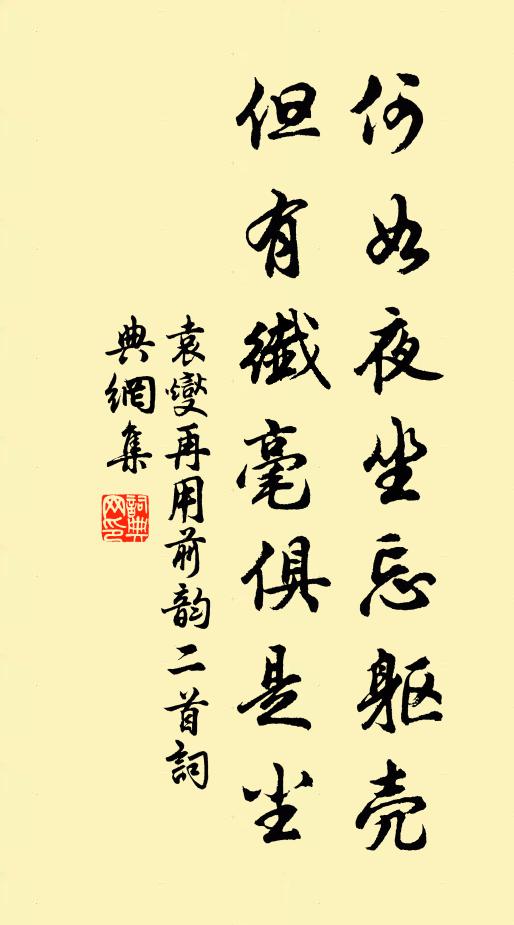 何如夜坐忘躯壳
但有纖毫俱是尘
袁燮再用前韵二首詞
典網集
詞典網印